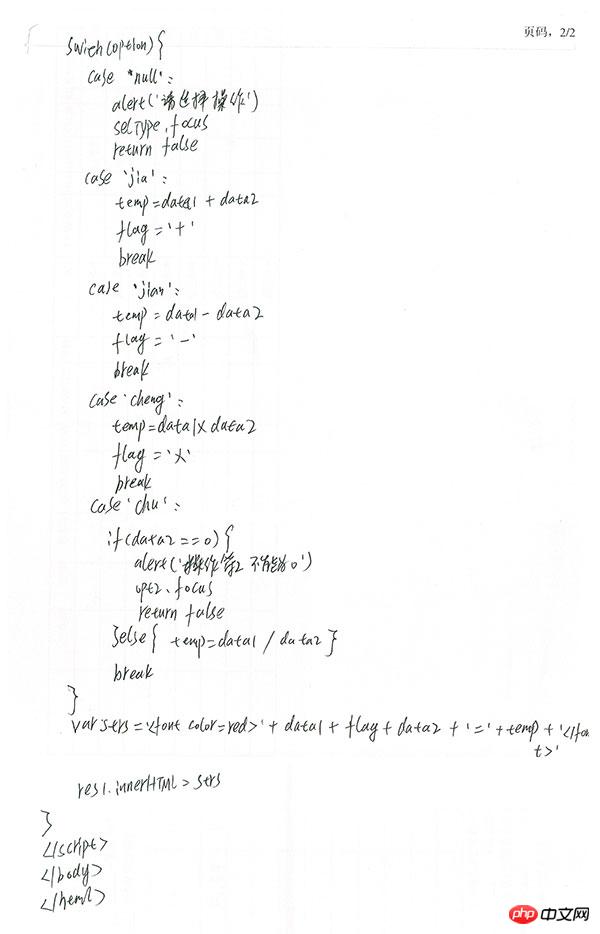 页码,2/2
swich(option){
case 'null':
alert('请选择操作')
selType.focus
return false
case 'jia':
temp=data1 + data2
flag='+'
break
case 'jian':
temp=data1-data2
flag='-'
break
case'cheng':
temp=data1×data2
flag='×'
break
case'chu':
if(data2==0){
alert('操作符2不能为0')
opt2.focus
return false
}else{ temp=data1/data2}
break
}
var strs='<font color=red>'+data1+flag+data2+'='+temp+'</fon
t>'
res1.innerHTML=strs
}
</script>
</body>
</html>
php 中文网